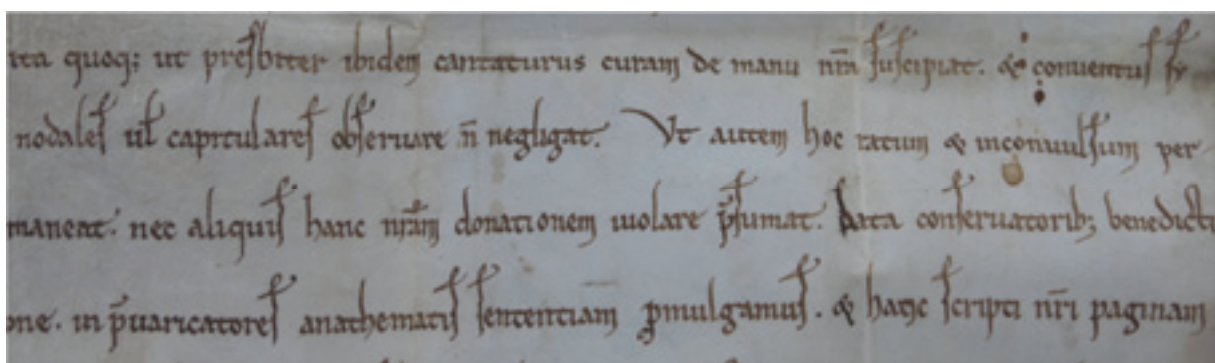 ita quoq; ut presbiter ibidem cantaturus curam de manu nr̄a suscipiat. & conventus sy
nodales ul̄ capitulares observare n̄ negligat. Ut autem hoc ratum & inconvulsum per
maneat. nec aliquis hanc nr̄am donationem violare p̄sumat. Data conservatorib; benedicti
one. in p̄varicatores anathematis sententiam ꝓmulgamus. & hanc scripti nr̄i paginam